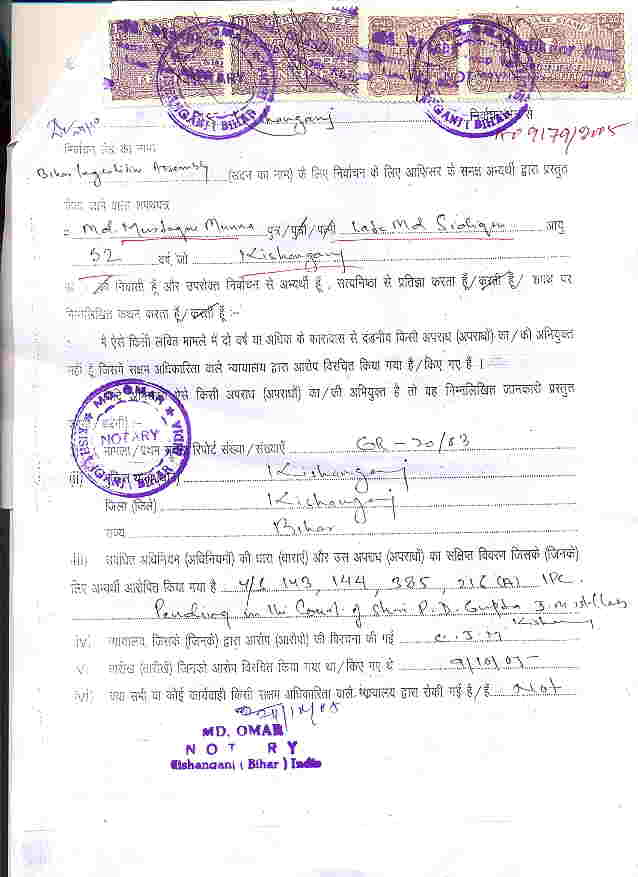 MD. OMAR
NOTARY
KISHANGANJ (BIHAR) INDIA
Kishanganj
निर्वाचन
No 9179/2005
निर्वाचन क्षेत्र का नाम
Bihar Legislative Assembly (सदन का नाम) के लिए निर्वाचन के लिए आफिसर के समक्ष अभ्यर्थी द्वारा प्रस्तुत
किया जाने वाला शपथपत्र
Md. Mustaque Munna पुत्र/पुत्री/पत्नी Late Md Sidique आयु
52 वर्ष, जो Kishanganj
का निवासी हूँ और उपरोक्त निर्वाचन से अभ्यर्थी हूँ, सत्यनिष्ठा से प्रतिज्ञा करता हूँ/करती हूँ/ शपथ पर
निम्नलिखित कथन करता हूँ/करती हूँ :-
मैं ऐसे किसी लंबित मामले में दो वर्ष या अधिक के कारावास से दंडनीय किसी अपराध (अपराधों) का/की अभियुक्त
नहीं हूँ जिसमें सक्षम अधिकारिता वाले न्यायालय द्वारा आरोप विरचित किया गया है/किए गए है ।
ऐसे किसी अपराध (अपराधों) का/की अभियुक्त है तो वह निम्नलिखित जानकारी प्रस्तुत
MD. OMAR
NOTARY
KISHANGANJ (BIHAR) INDIA
मामला/प्रथम रिपोर्ट संख्या/संख्याएँ GR-20/83
(ii) Kishanganj
जिला (जिले) Kishanganj
राज्य Bihar
(iii) संबंधित अधिनियम (अधिनियमों) की धारा (धाराएं) और उस अपराध (अपराधों) का संक्षिप्त विवरण जिसके (जिनके)
लिए अभ्यर्थी आरोपित किया गया है u/s 143, 144, 385, 216(A) IPC.
Pending in the Court of Shri P. D. Gupta J.M. 1st Class
Kishanganj
iv. न्यायालय, जिसके (जिनके) द्वारा आरोप (आरोपों) की विरचना की गई C.J.M
v. तारीख (तारीखें) जिनको आरोप विरचित किया गया था/किए गए थे 9/10/05
(vi) क्या सभी या कोई कार्यवाही किसी सक्षम अधिकारिता वाले न्यायालय द्वारा रोकी गई है/हैं Not
MD. OMAR
NOT RY
Kishanganj (Bihar) India